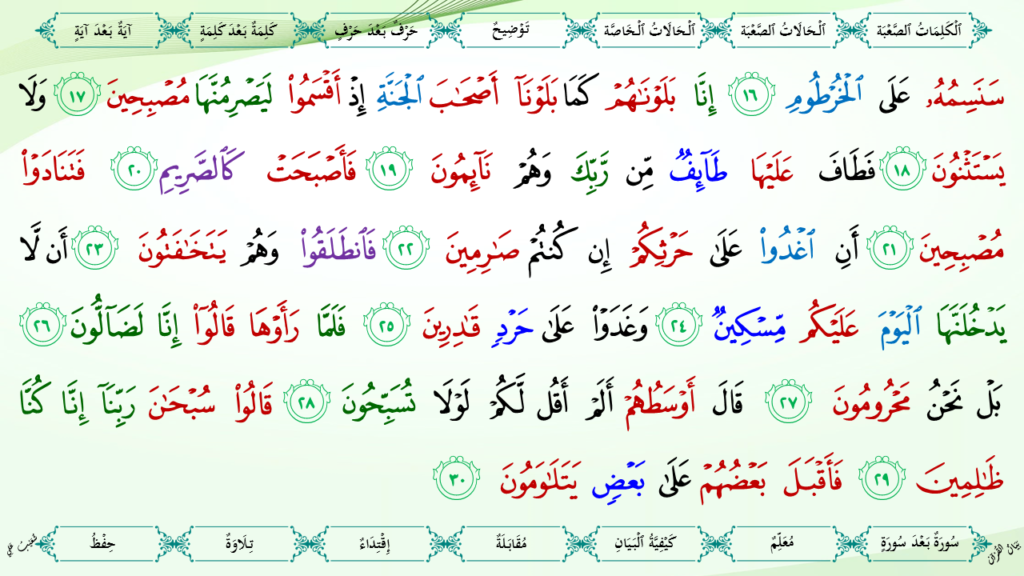 اَلْكَلِمَاتُ الصَّعْبَة اَلْحَالَاتُ الصَّعْبَة اَلْحَالَاتُ الْخَاصَّة تَوْضِيحٌ حَرْفٌ بَعْدَ حَرْفٍ كَلِمَةٌ بَعْدَ كَلِمَةٍ آيَةٌ بَعْدَ آيَةٍ
سَنَسِمُهُۥ عَلَى ٱلْخُرْطُومِ ١٦ إِنَّا بَلَوْنَٰهُمْ كَمَا بَلَوْنَآ أَصْحَٰبَ ٱلْجَنَّةِ إِذْ أَقْسَمُوا۟ لَيَصْرِمُنَّهَا مُصْبِحِينَ ١٧ وَلَا
يَسْتَثْنُونَ ١٨ فَطَافَ عَلَيْهَا طَآئِفٌ مِّن رَّبِّكَ وَهُمْ نَآئِمُونَ ١٩ فَأَصْبَحَتْ كَٱلصَّرِيمِ ٢٠ فَتَنَادَوْا۟
مُصْبِحِينَ ٢١ أَنِ ٱغْدُوا۟ عَلَىٰ حَرْثِكُمْ إِن كُنتُمْ صَٰرِمِينَ ٢٢ فَٱنطَلَقُوا۟ وَهُمْ يَتَخَٰفَتُونَ ٢٣ أَن لَّا
يَدْخُلَنَّهَا ٱلْيَوْمَ عَلَيْكُم مِّسْكِينٌ ٢٤ وَغَدَوْا۟ عَلَىٰ حَرْدٍ قَٰدِرِينَ ٢٥ فَلَمَّا رَأَوْهَا قَالُوٓا۟ إِنَّا لَضَآلُّونَ ٢٦
بَلْ نَحْنُ مَحْرُومُونَ ٢٧ قَالَ أَوْسَطُهُمْ أَلَمْ أَقُل لَّكُمْ لَوْلَا تُسَبِّحُونَ ٢٨ قَالُوا۟ سُبْحَٰنَ رَبِّنَآ إِنَّا كُنَّا
ظَٰلِمِينَ ٢٩ فَأَقْبَلَ بَعْضُهُمْ عَلَىٰ بَعْضٍ يَتَلَٰوَمُونَ ٣٠
سُورَةٌ بَعْدَ سُورَةٍ مُعَلِّمٌ كَيْفِيَّةُ الْبَيَانِ مُقَابَلَةٌ إِقْتِدَاءٌ تِلَاوَةٌ حِفْظٌ